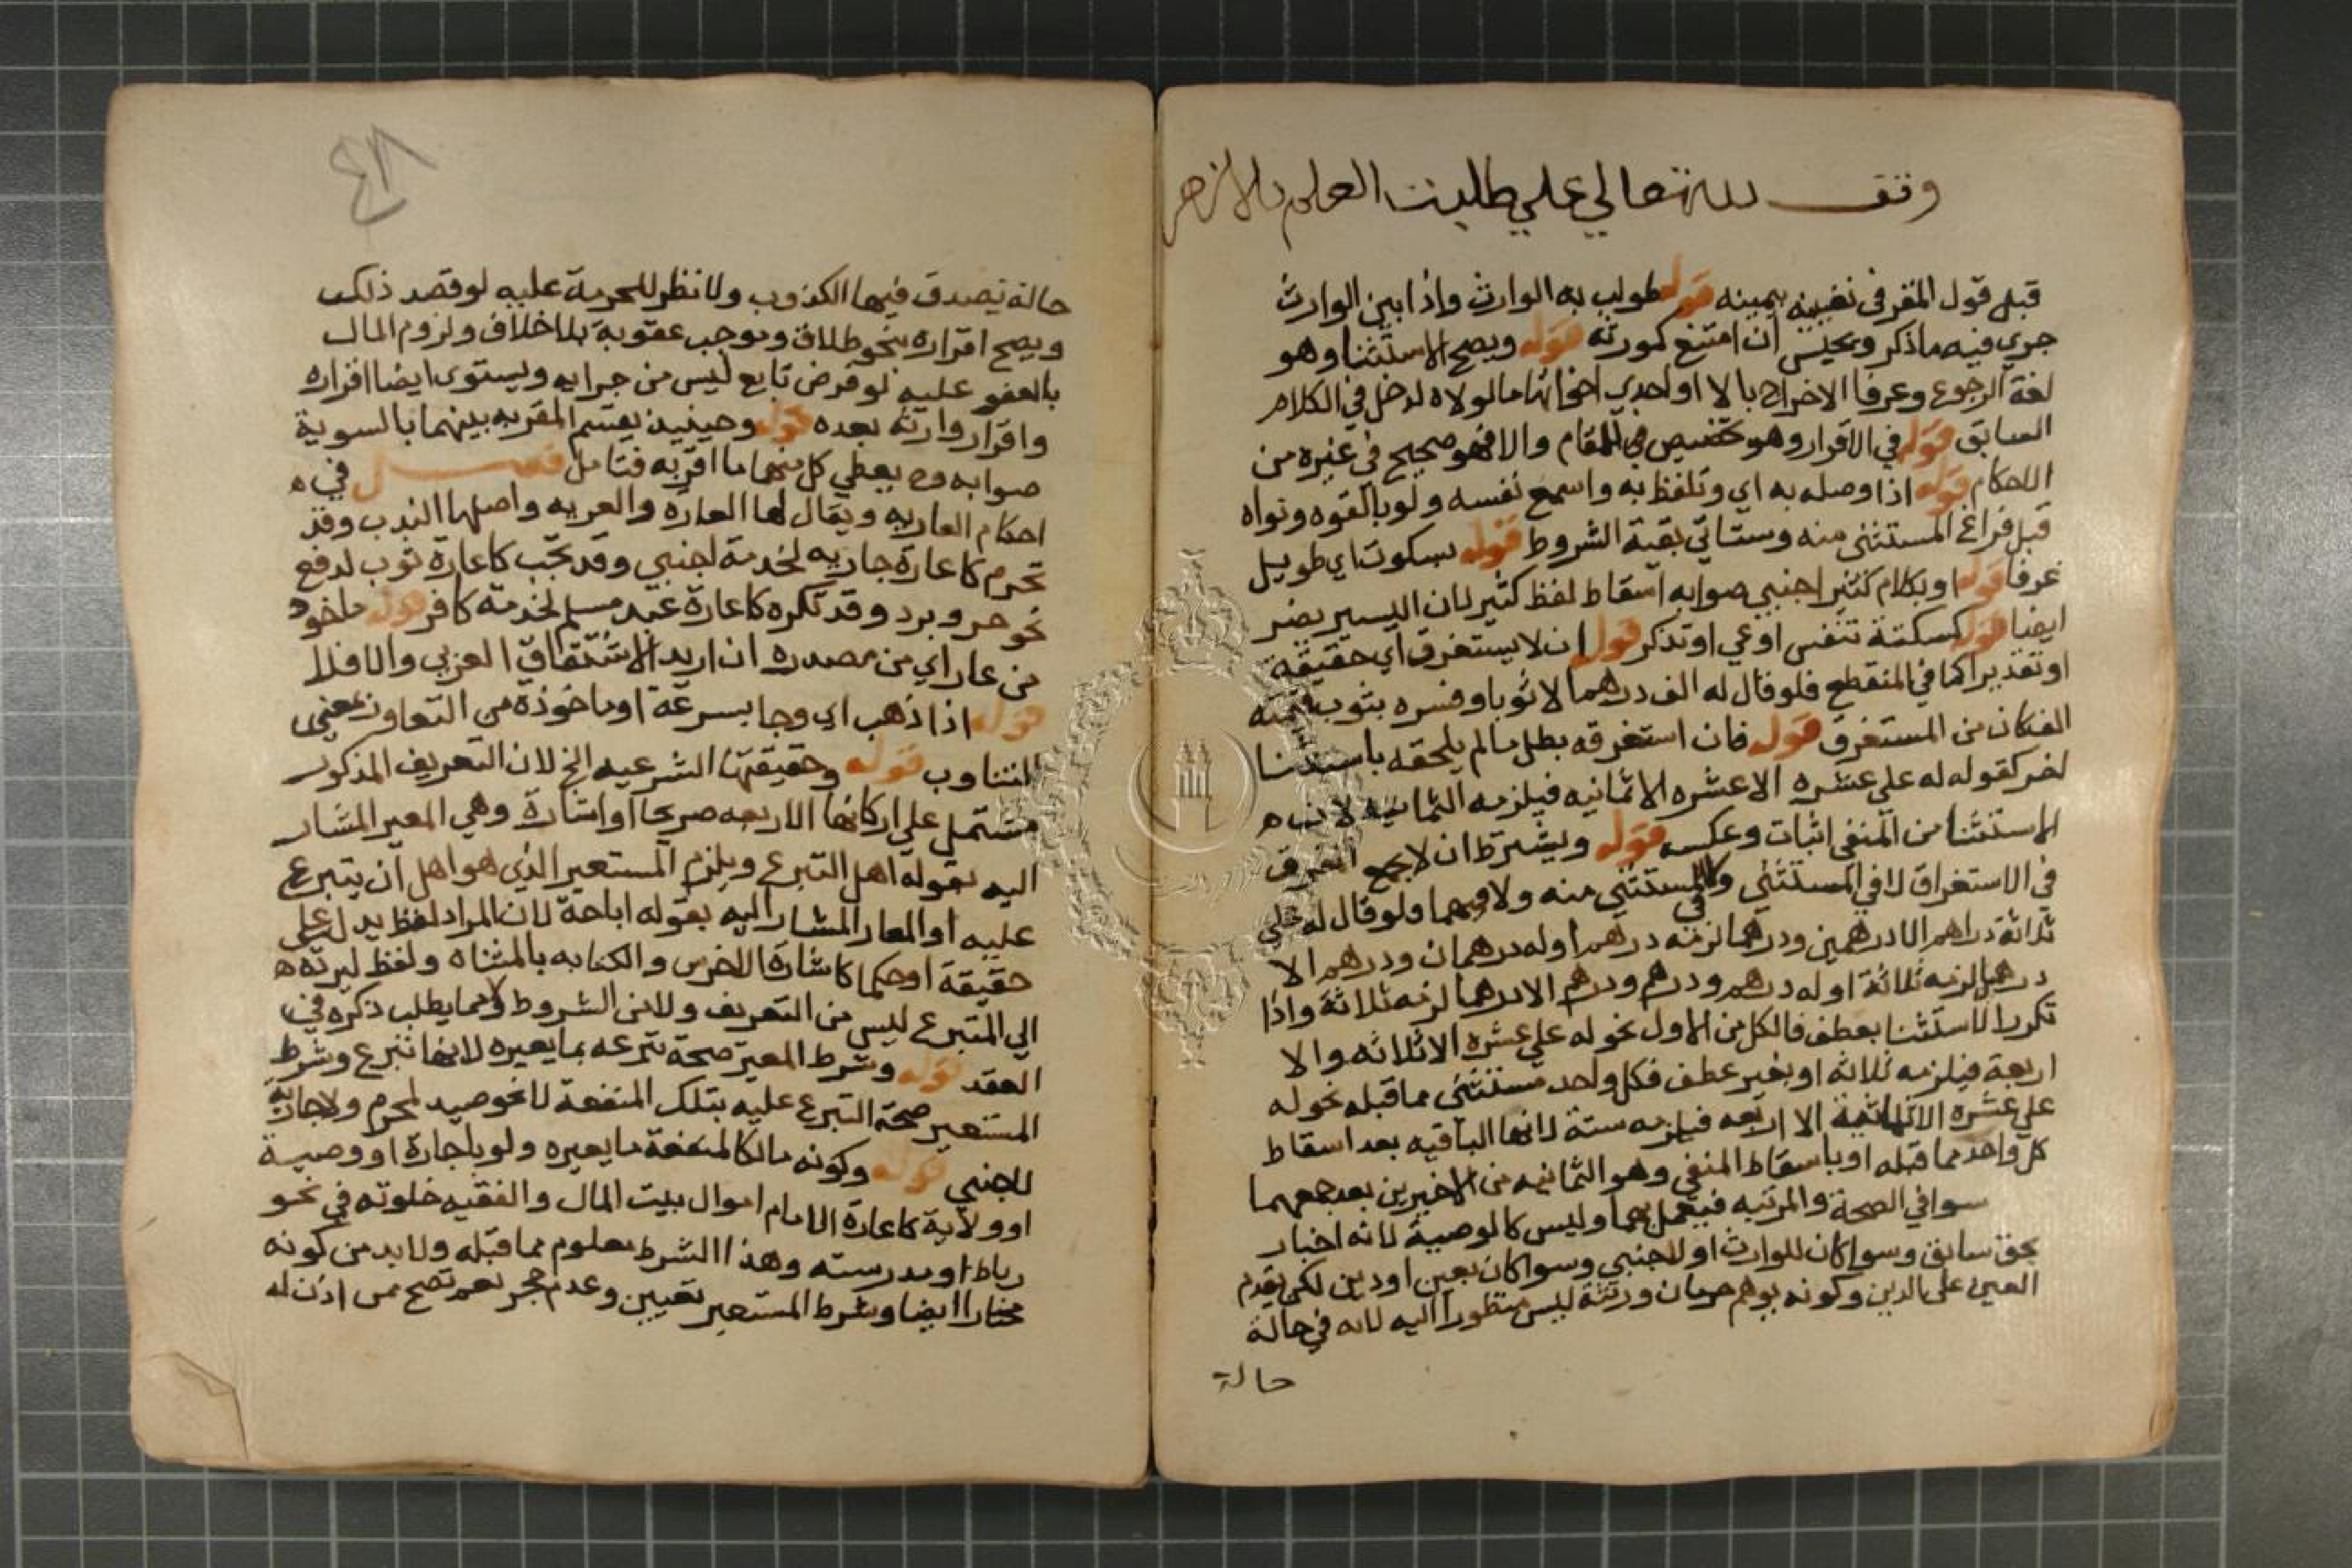 وقف لله تعالي علي طلبت العلم بالازهر
قبل قول المقر في نفيه بيمينه قوله طولب به الوارث واذا بين الوارث
جري فيه ما ذكر ويحبس ان امتنع كمورثه قوله ويصح الاستثنا وهو
لغة الرجوع وعرفا الاخراج بالا او احدي اخواتها ما لولاه لدخل في الكلام
السابق قوله في الاقرار وهو تخصيص للمقام والا فهو صحيح في غيره من
الاحكام قوله اذا وصله به اي وتلفظ به واسمع نفسه ولو بالقوه ونواه
قبل فراغ المستثني منه وستاتي بقية الشروط قوله بسكوت اي طويل
عرفا قوله او بكلام كثير اجنبي صوابه اسقاط لفظ كثير لان اليسير يضر
ايضا قوله كسكتة تنفس او عي او تذكر قوله ان لا يستغرق اي حقيقة
او تقديرا كما في المنقطع فلو قال له الف درهما الا ثوبا وفسره بثوب قيمته
الف كان من المستغرق قوله فان استغرقه بطل ما لم يلحقه باستثنا
اخر كقوله له علي عشره الا عشره الا ثمانيه فيلزمه الثمانيه لان ه
الاستثنا من المنفي اثبات وعكسه قوله ويشترط ان لا يجمع المفرق
في الاستغراق لا في المستثني ولا في المستثني منه ولا فيهما ولو قال له علي
ثلاثة دراهم الا درهمين ودرهما لزمه درهم او له درهمان ودرهم الا
درهما لزمه ثلاثة او له درهم ودرهم ودرهم الا درهما لزمه ثلاثة واذا
تكرر الاستثنا بعطف فالكل من الاول نحو له علي عشره الا ثلاثه والا
اربعة فيلزمه ثلاثه او بغير عطف فكل واحد مستثني مما قبله نحو له
علي عشره الا ثمانية الا اربعه فيلزمه ستة لانها الباقيه بعد اسقاط
كل واحد مما قبله او باسقاط المنفي وهو الثمانيه من الاخيرين بعد جمعهما
سوا في الصحة والمرتبه فيعمل بهما وليس كالوصية لانه اخبار
بحق سابق وسوا كان للوارث او للاجنبي وسوا كان بعين او دين لكن يقدم
العين علي الدين وكونه يوهم حرمان ورثته ليس منظورا اليه لانه في حالة
حالة
حالة يصدق فيها الكذوب ولا نظر للحرمة عليه لو قصد ذلك
ويصح اقراره بنحو طلاق وموجب عقوبة بلا خلاف ولزوم المال
بالعفو عليه لو فرض تابع ليس من جرايه ويستوي ايضا اقراره
واقرار وارثه بعده قوله وحينيذ يقسم المقر به بينهما بالسوية
صوابه وح يعطي كل منهما ما اقر به فتامل فصل في ه
احكام العاريه ويقال لها العاره والعريه واصلها الندب وقد
تحرم كاعارة جاريه لخدمة اجنبي وقد تجب كاعارة ثوب لدفع
نحو حر وبرد وقد تكره كاعارة عبد مسلم لخدمة كافر قوله ماخوذ
من عار اي من مصدره ان اريد الاشتقاق العزبي والا فلا
قوله اذا ذهب اي وجا بسرعة او ماخوذة من التعاور بمعني
التناوب قوله وحقيقتها الشرعيه الخ لان التعريف المذكور
مشتمل علي اركانها الاربعه صريحا او اشارة وهي المعير المشار
اليه بقوله اهل التبرع ويلزم المستعير الذي هو اهل ان يتبرع
عليه او المعار المشار اليه بقوله اباحة لان المراد لفظ يدل علي
حقيقة او حكما كاشارة الاخرس والكتابه بالمثناه ولفظ ليرده ه
الي المتبرع ليس من التعريف ولا من الشروط ولا مما يطلب ذكره في
العقد قوله وشرط المعير صحة تبرعه بما يعيره لانها تبرع وشرط
المستعير صحة التبرع عليه بتلك المنفعة لا نحو صيد لمحرم ولا جارية
لاجنبي قوله وكونه مالكا لمنفعة ما يعيره ولو باجارة او وصية
او ولاية كاعارة الامام اموال بيت المال والفقيه خلوته في نحو
رباط او مدرسته وهذا الشرط معلوم مما قبله ولا بد من كونه
مختارا ايضا وشرط المستعير تعيين وعدم حجر نعم تصح من اذن له